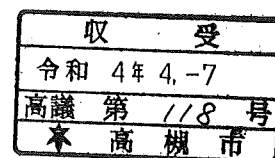 収受
令和 4年 4.-7
高議 第 118 号
高槻市